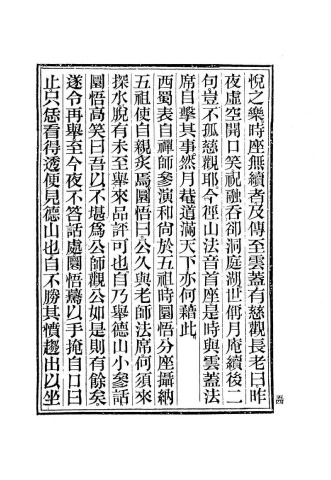 悅之樂時座無續者及傳至雲蓋有慈觀長老曰昨
夜虛空開口笑祝融吞卻洞庭湖世俏月庵續後二
句豈不孤慈觀耶今徑山法音首座是時與雲蓋法
席自擊其事然月菴道滿天下亦何藉此
西蜀表自禪師參演和尚於五祖時圜悟分座攝納
五祖使自親炙焉圜悟曰公久與老師法席何須來
探水脫有未至舉來品評可也自乃舉德山小參話
圜悟高笑曰吾以不堪為公師觀公如是則有餘矣
遂令再舉至今夜不答話處圜悟驀以手掩自口曰
止只恁看得透便見德山也自不勝其憤趨出以坐